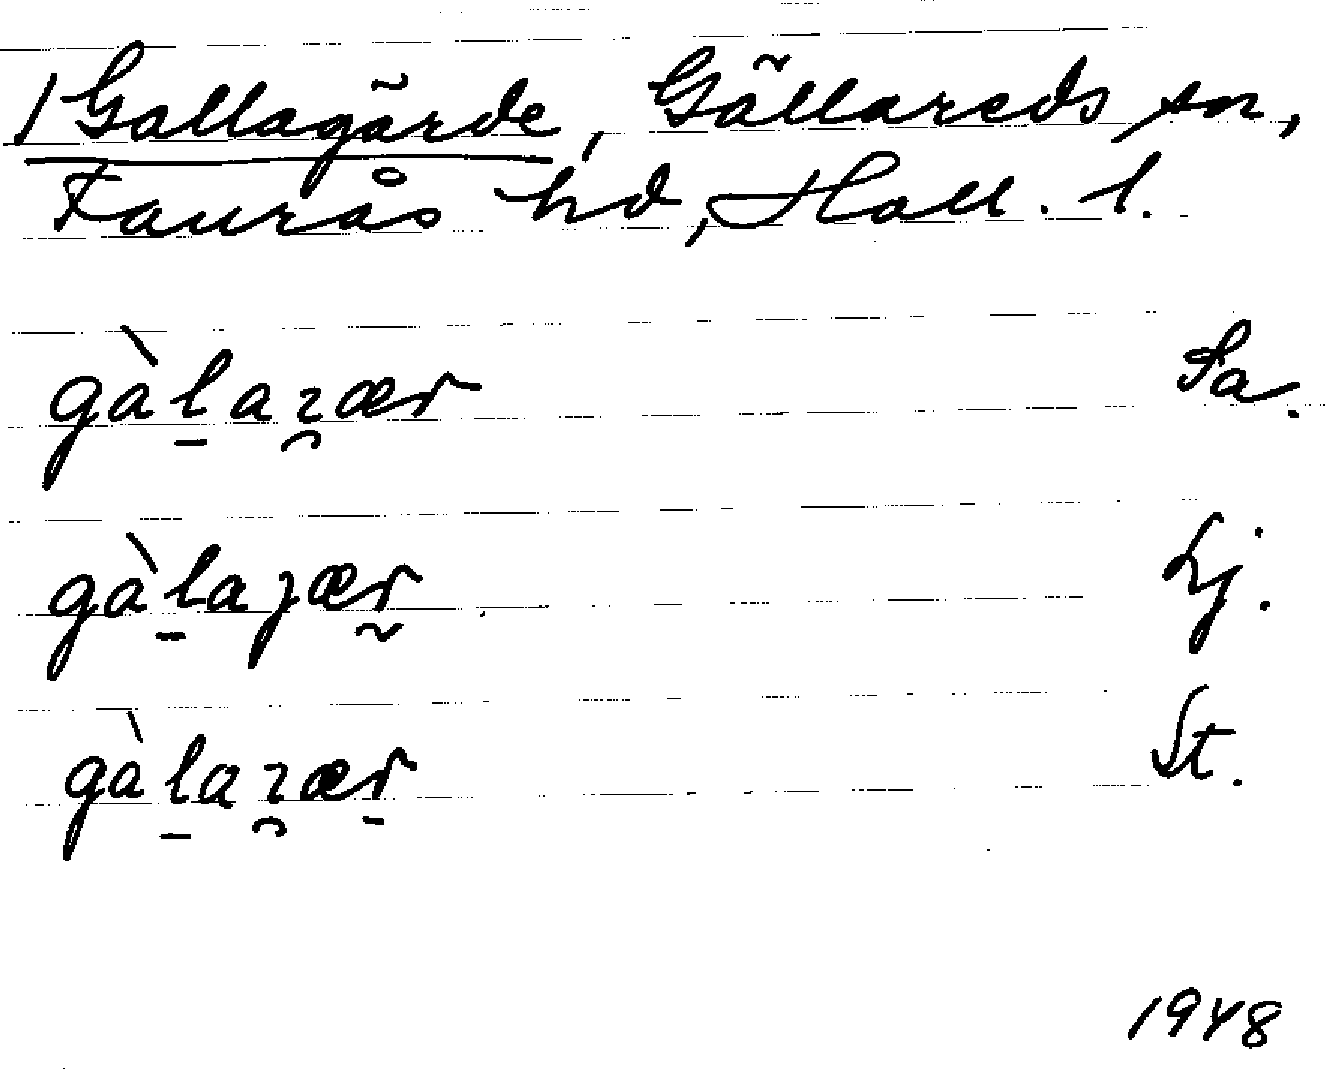 1 Gallagärde, Gällareds sn,
Faurås hd, Hall. l.
gàl̠aɿ̯ær Sa.
gàl̠aȷær̰ Lj.
gàl̠aɿ̯æṟ St.
1948